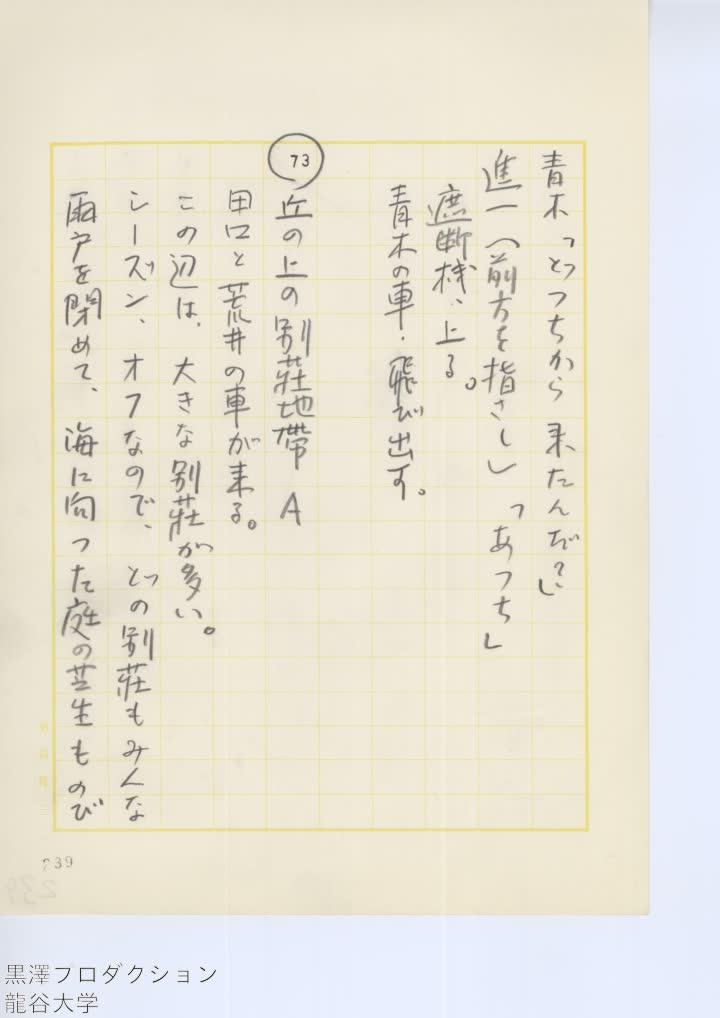 青木「どっちから来たんだ？」
進一（前方を指さし）「あっち」
遮断機、上る。
青木の車、飛び出す。
73
丘の上の別荘地帯 A
田口と荒井の車が来る。
この辺は、大きな別荘が多い。
シーズン、オフなので、どの別荘もみんな
雨戸を閉めて、海に向った庭の芝生ものび
239
黒澤プロダクション
龍谷大学